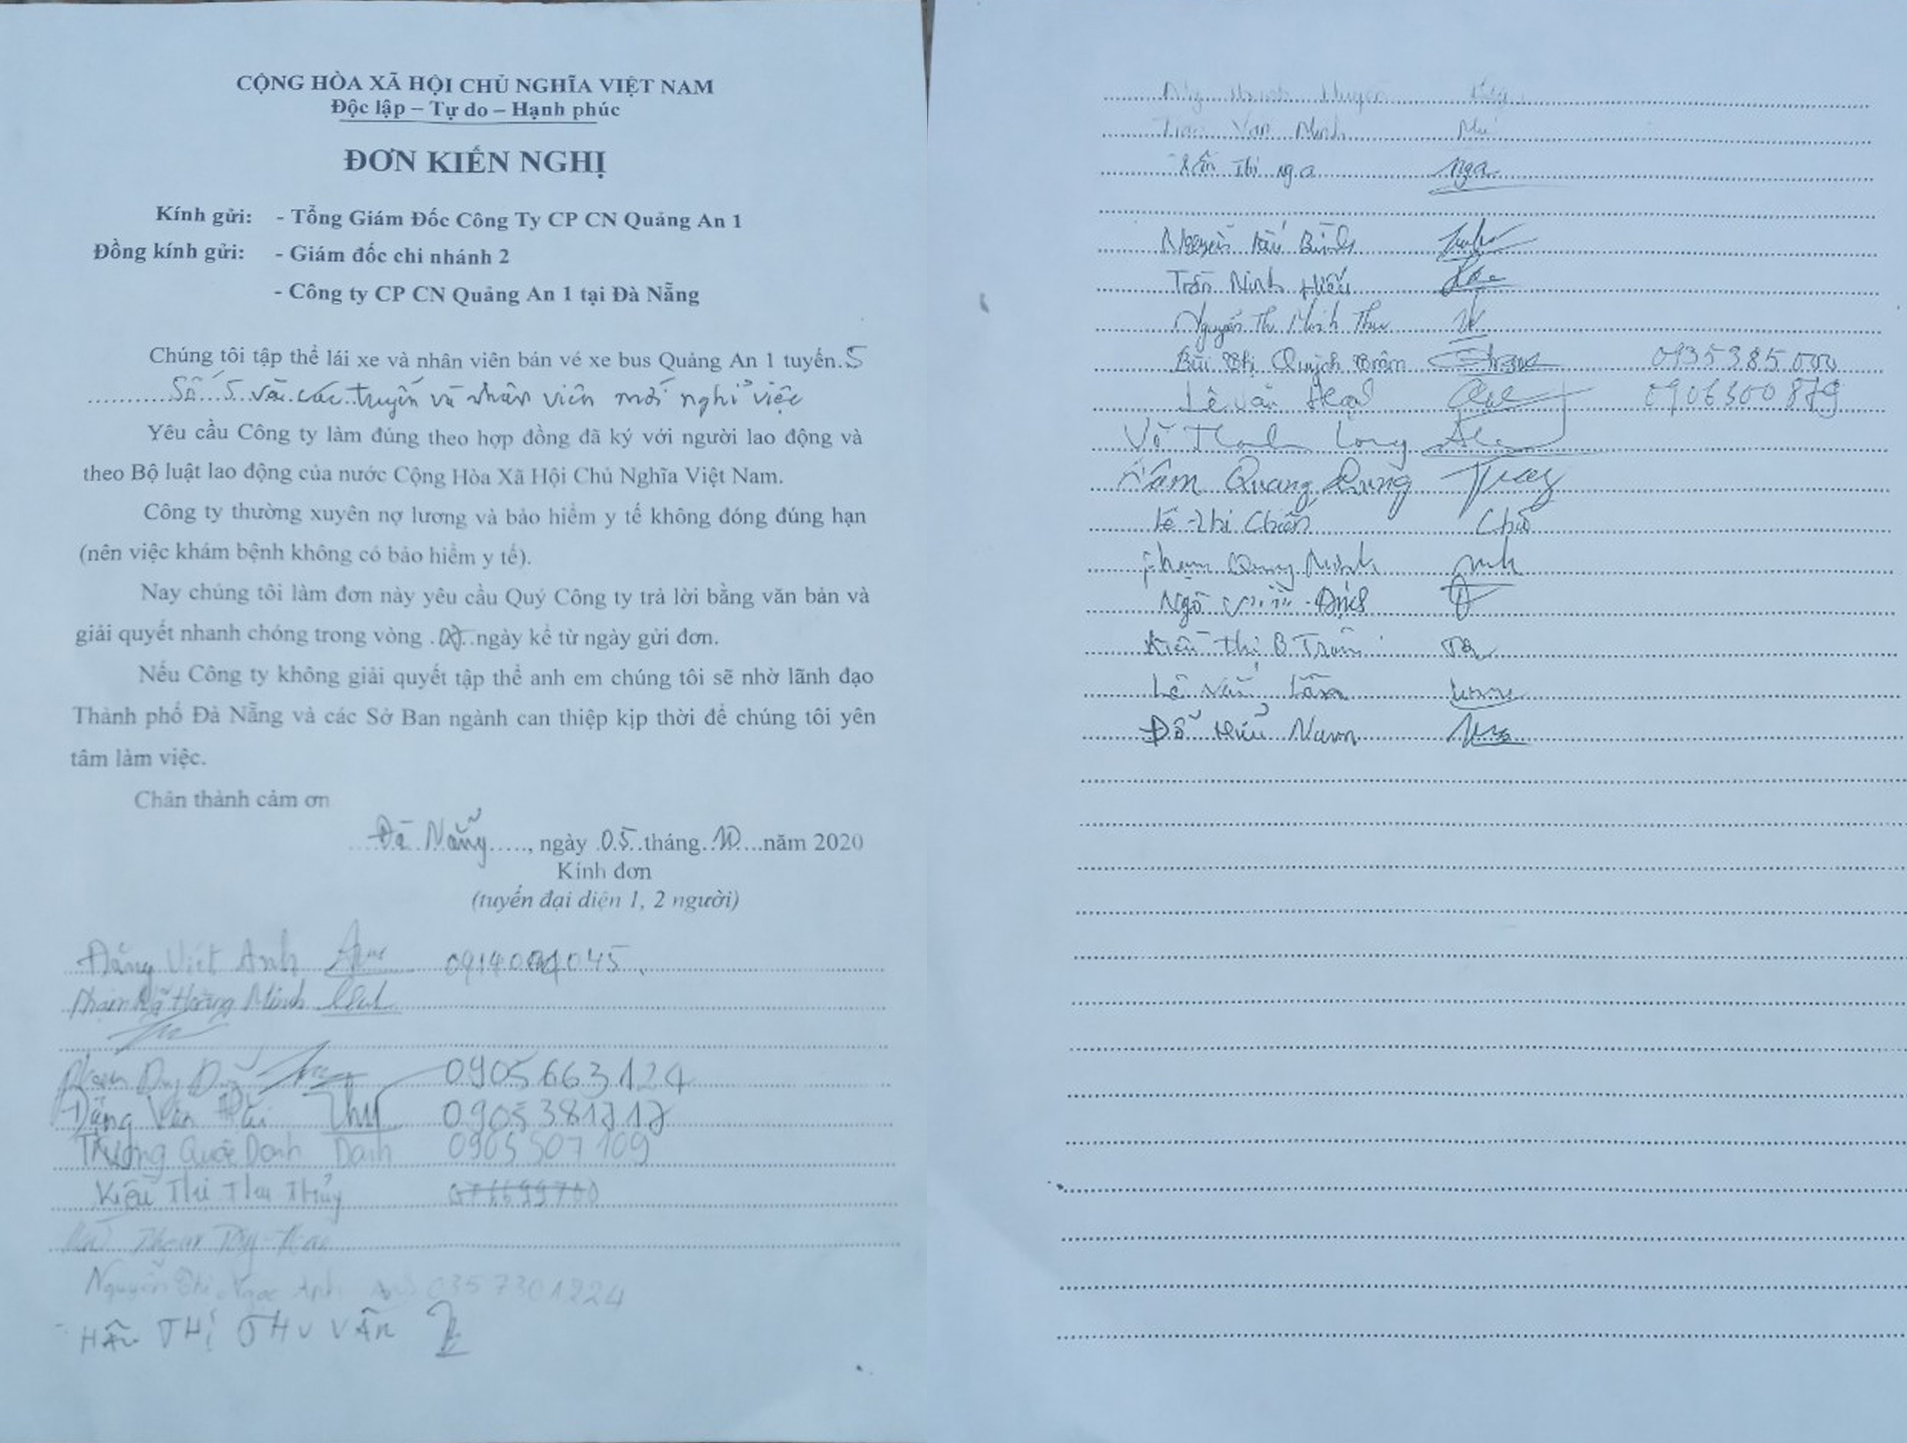 CỘNG HÒA XÃ HỘI CHỦ NGHĨA VIỆT NAM
Độc lập – Tự do – Hạnh phúc
ĐƠN KIẾN NGHỊ
Kính gửi: - Tổng Giám Đốc Công Ty CP CN Quảng An 1
Đồng kính gửi: - Giám đốc chi nhánh 2
- Công ty CP CN Quảng An 1 tại Đà Nẵng
Chúng tôi tập thể lái xe và nhân viên bán vé xe bus Quảng An 1 tuyến.5
Số 5 và các tuyến và nhân viên mới nghỉ việc
Yêu cầu Công ty làm đúng theo hợp đồng đã ký với người lao động và
theo Bộ luật lao động của nước Cộng Hòa Xã Hội Chủ Nghĩa Việt Nam.
Công ty thường xuyên nợ lương và bảo hiểm y tế không đóng đúng hạn
(nên việc khám bệnh không có bảo hiểm y tế).
Nay chúng tôi làm đơn này yêu cầu Quý Công ty trả lời bằng văn bản và
giải quyết nhanh chóng trong vòng ngày kể từ ngày gửi đơn.
Nếu Công ty không giải quyết tập thể anh em chúng tôi sẽ nhờ lãnh đạo
Thành phố Đà Nẵng và các Sở Ban ngành can thiệp kịp thời để chúng tôi yên
tâm làm việc.
Chân thành cảm ơn
Đà Nẵng....., ngày .05..tháng.10...năm 2020
Kính đơn
(tuyến đại diện 1, 2 người)
Đặng Việt Anh
Phạm Hoàng Minh
Phạm Duy 0905663124
Đặng Văn Hải Thy 0905381717
Trương Quốc Danh Danh 0905507109
Kiều Thị Thu Thủy
Nguyễn Thị Ngọc Anh 0357301224
HẦU THỊ THU VÂN
Huyền
Trần Văn Minh
Thị Nga Nga
Nguyễn Hữu Bình
Trần Ninh Hiếu
Nguyễn Thị Minh Thư
Bùi Thị Quỳnh Trâm 0935385000
Lê Văn 0906300879
Võ Thanh Long
Quang Dũng
Lê Thị Chiến
Phạm Quang Minh
Ngô Đức
Kiều Thị B Trâm
Lê Văn Lâm
Đỗ Hữu Nam